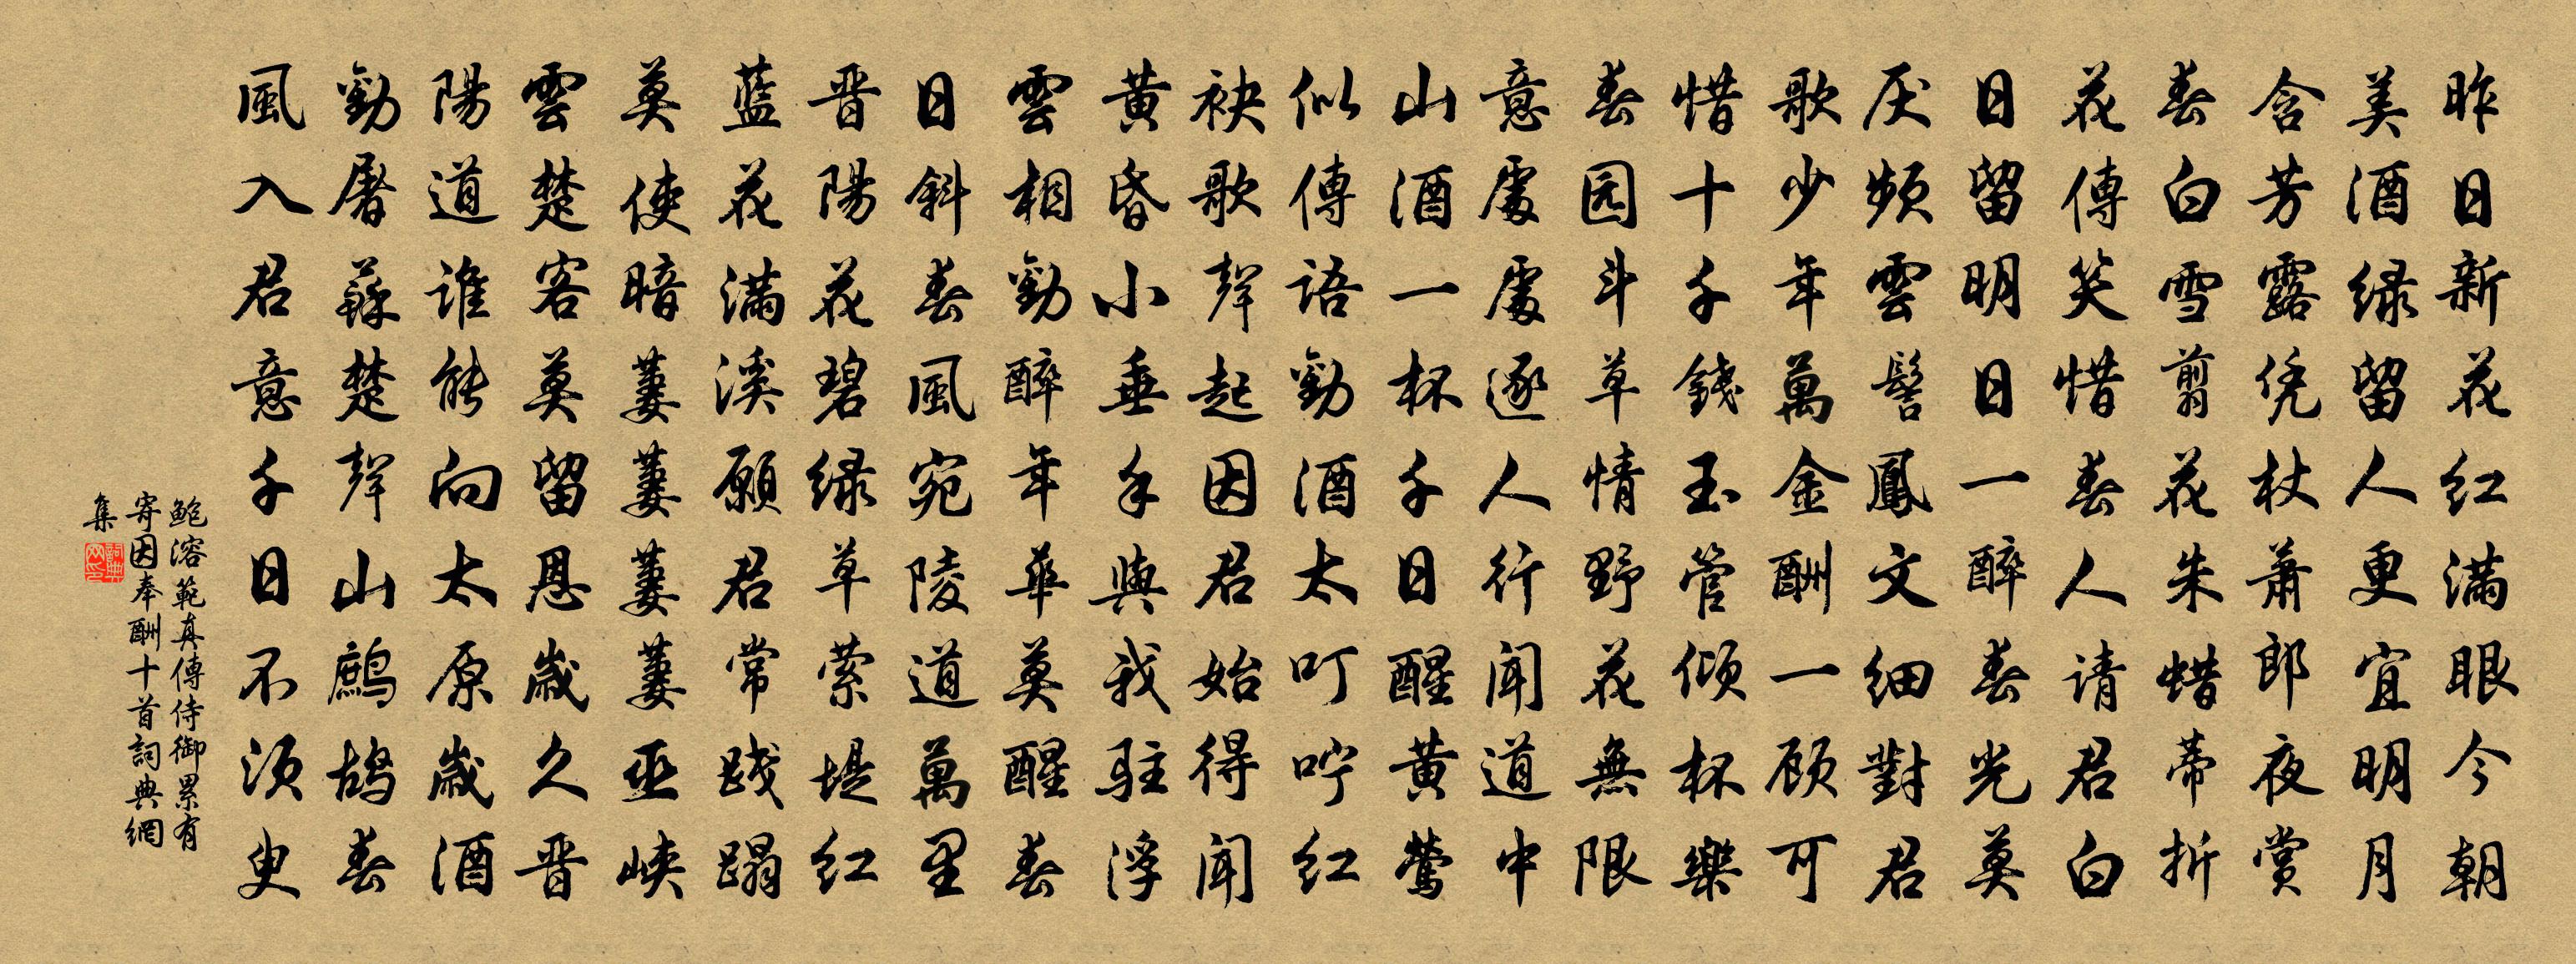 昨日新花红满眼今朝
美酒绿留人更宜明月
含芳露凭杖萧郎夜赏
春白雪剪花朱蜡蒂折
花傳笑惜春人请君白
日留明日一醉春光莫
厌频雲髻鳳文细對君
歌少年萬金酬一顾可
惜十千錢玉管倾杯樂
春园斗草情野花無限
意處處逐人行闻道中
山酒一杯千日醒黄莺
似傳语勸酒太叮咛红
袂歌聲起因君始得闻
黄昏小垂手與我驻浮
雲相勸醉年華莫醒春
日斜春風宛陵道萬里
晋陽花碧绿草萦堤红
蓝花满溪願君常践蹋
莫使暗萋萋萋萋巫峡
雲楚客莫留恩歲久晋
陽道谁能向太原歲酒
勸屠蘇楚聲山鷓鸪春
風入君意千日不须臾
鲍溶範真傳侍御累有
寄因奉酬十首詞典網
集
詞典网印